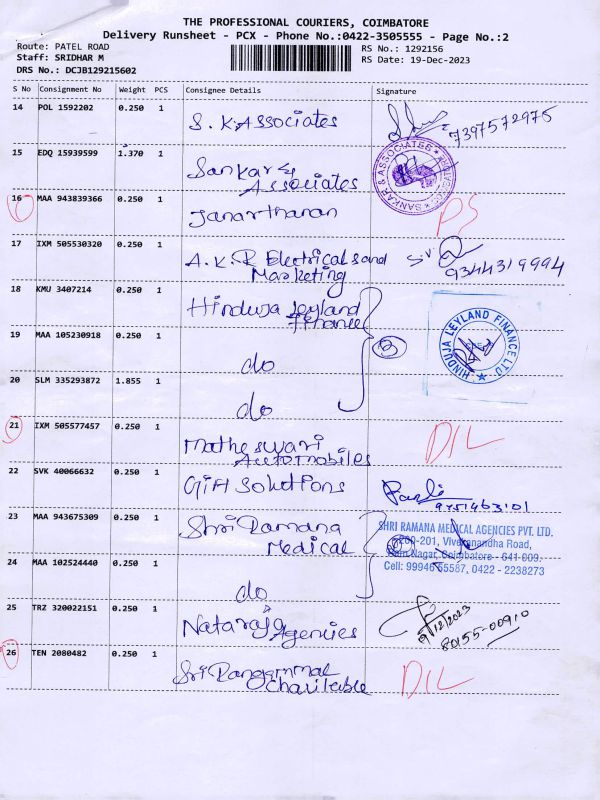 THE PROFESSIONAL COURIERS, COIMBATORE
Delivery Runsheet - PCX - Phone No.:0422-3505555 - Page No.:2
Route: PATEL ROAD
RS No.: 1292156
Staff: SRIDHAR M
RS Date: 19-Dec-2023
DRS No.: DCJB129215602
S No Consignment No Weight PCS Consignee Details Signature
14 POL 1592202 0.250 1 S. K. Associates 7397572975
15 EDQ 15939599 1.370 1 Sankar &
Associates
SANKAR & ASSOCIATES
16 MAA 943839366 0.250 1 Janarthanan PS
17 IXM 505530320 0.250 1 A. K. R Electricals and
Marketing
9344319994
18 KMU 3407214 0.250 1 Hinduja Leyland
Finance
HINDUJA LEYLAND FINANCE LTD
19 MAA 105230918 0.250 1 do 3
20 SLM 335293872 1.855 1 do
21 IXM 505577457 0.250 1 Matheswari
Automobiles
DIL
22 SVK 40066632 0.250 1 GiH Solutions
9751463101
23 MAA 943675309 0.250 1 Shri Ramana
Medical
SHRI RAMANA MEDICAL AGENCIES PVT. LTD.
200-201, Vivekanandha Road,
Ram Nagar, Coimbatore - 641 009.
Cell: 99946 55587, 0422 - 2238273
24 MAA 102524440 0.250 1 do
25 TRZ 320022151 0.250 1 Nataraja
Agencies
/12/2023
80155-00910
26 TEN 2080482 0.250 1 Sri Rangammal
Charitable
DIL